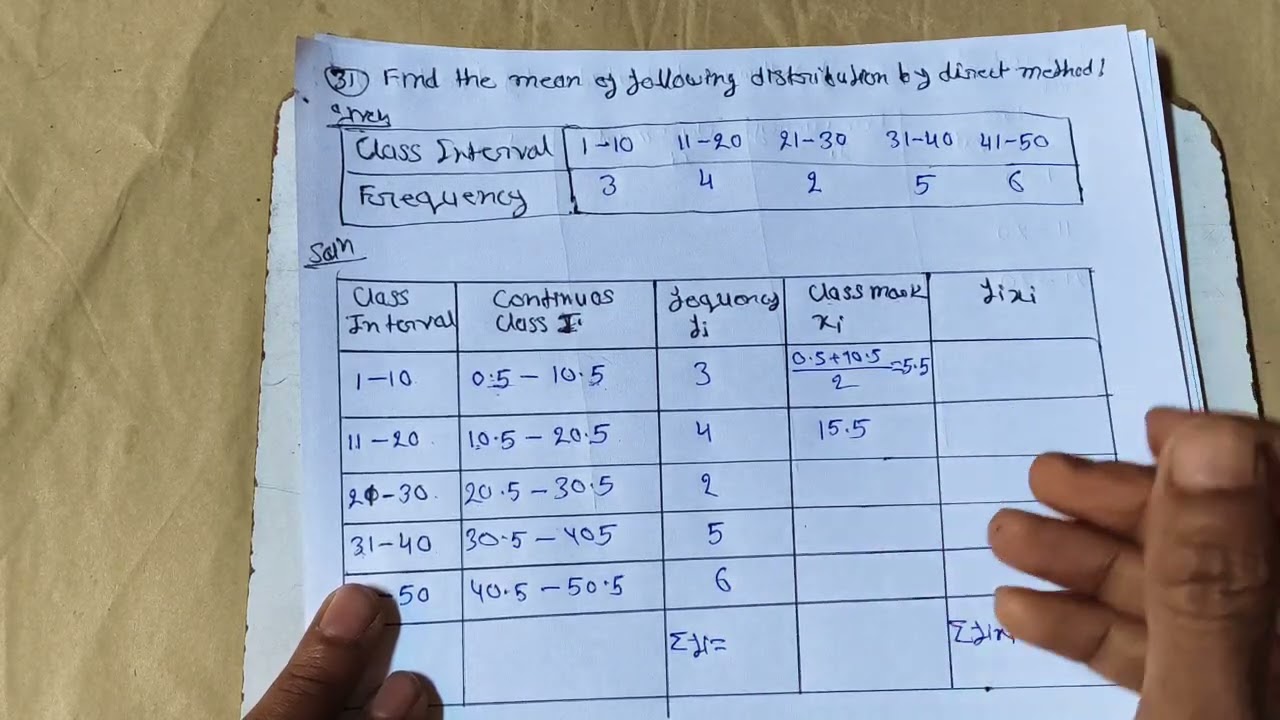 31) Find the mean of following distribution by direct method!
Given
Class Interval 1-10 11-20 21-30 31-40 41-50
Frequency 3 4 2 5 6
Soln
Class Interval Continuos Class I. fequency fi Class mark xi fixi
1-10 0.5-10.5 3 0.5+10.5/2=5.5
11-20 10.5-20.5 4 15.5
21-30 20.5-30.5 2
31-40 30.5-405 5
-50 40.5-50.5 6
Σfi= Σfixi